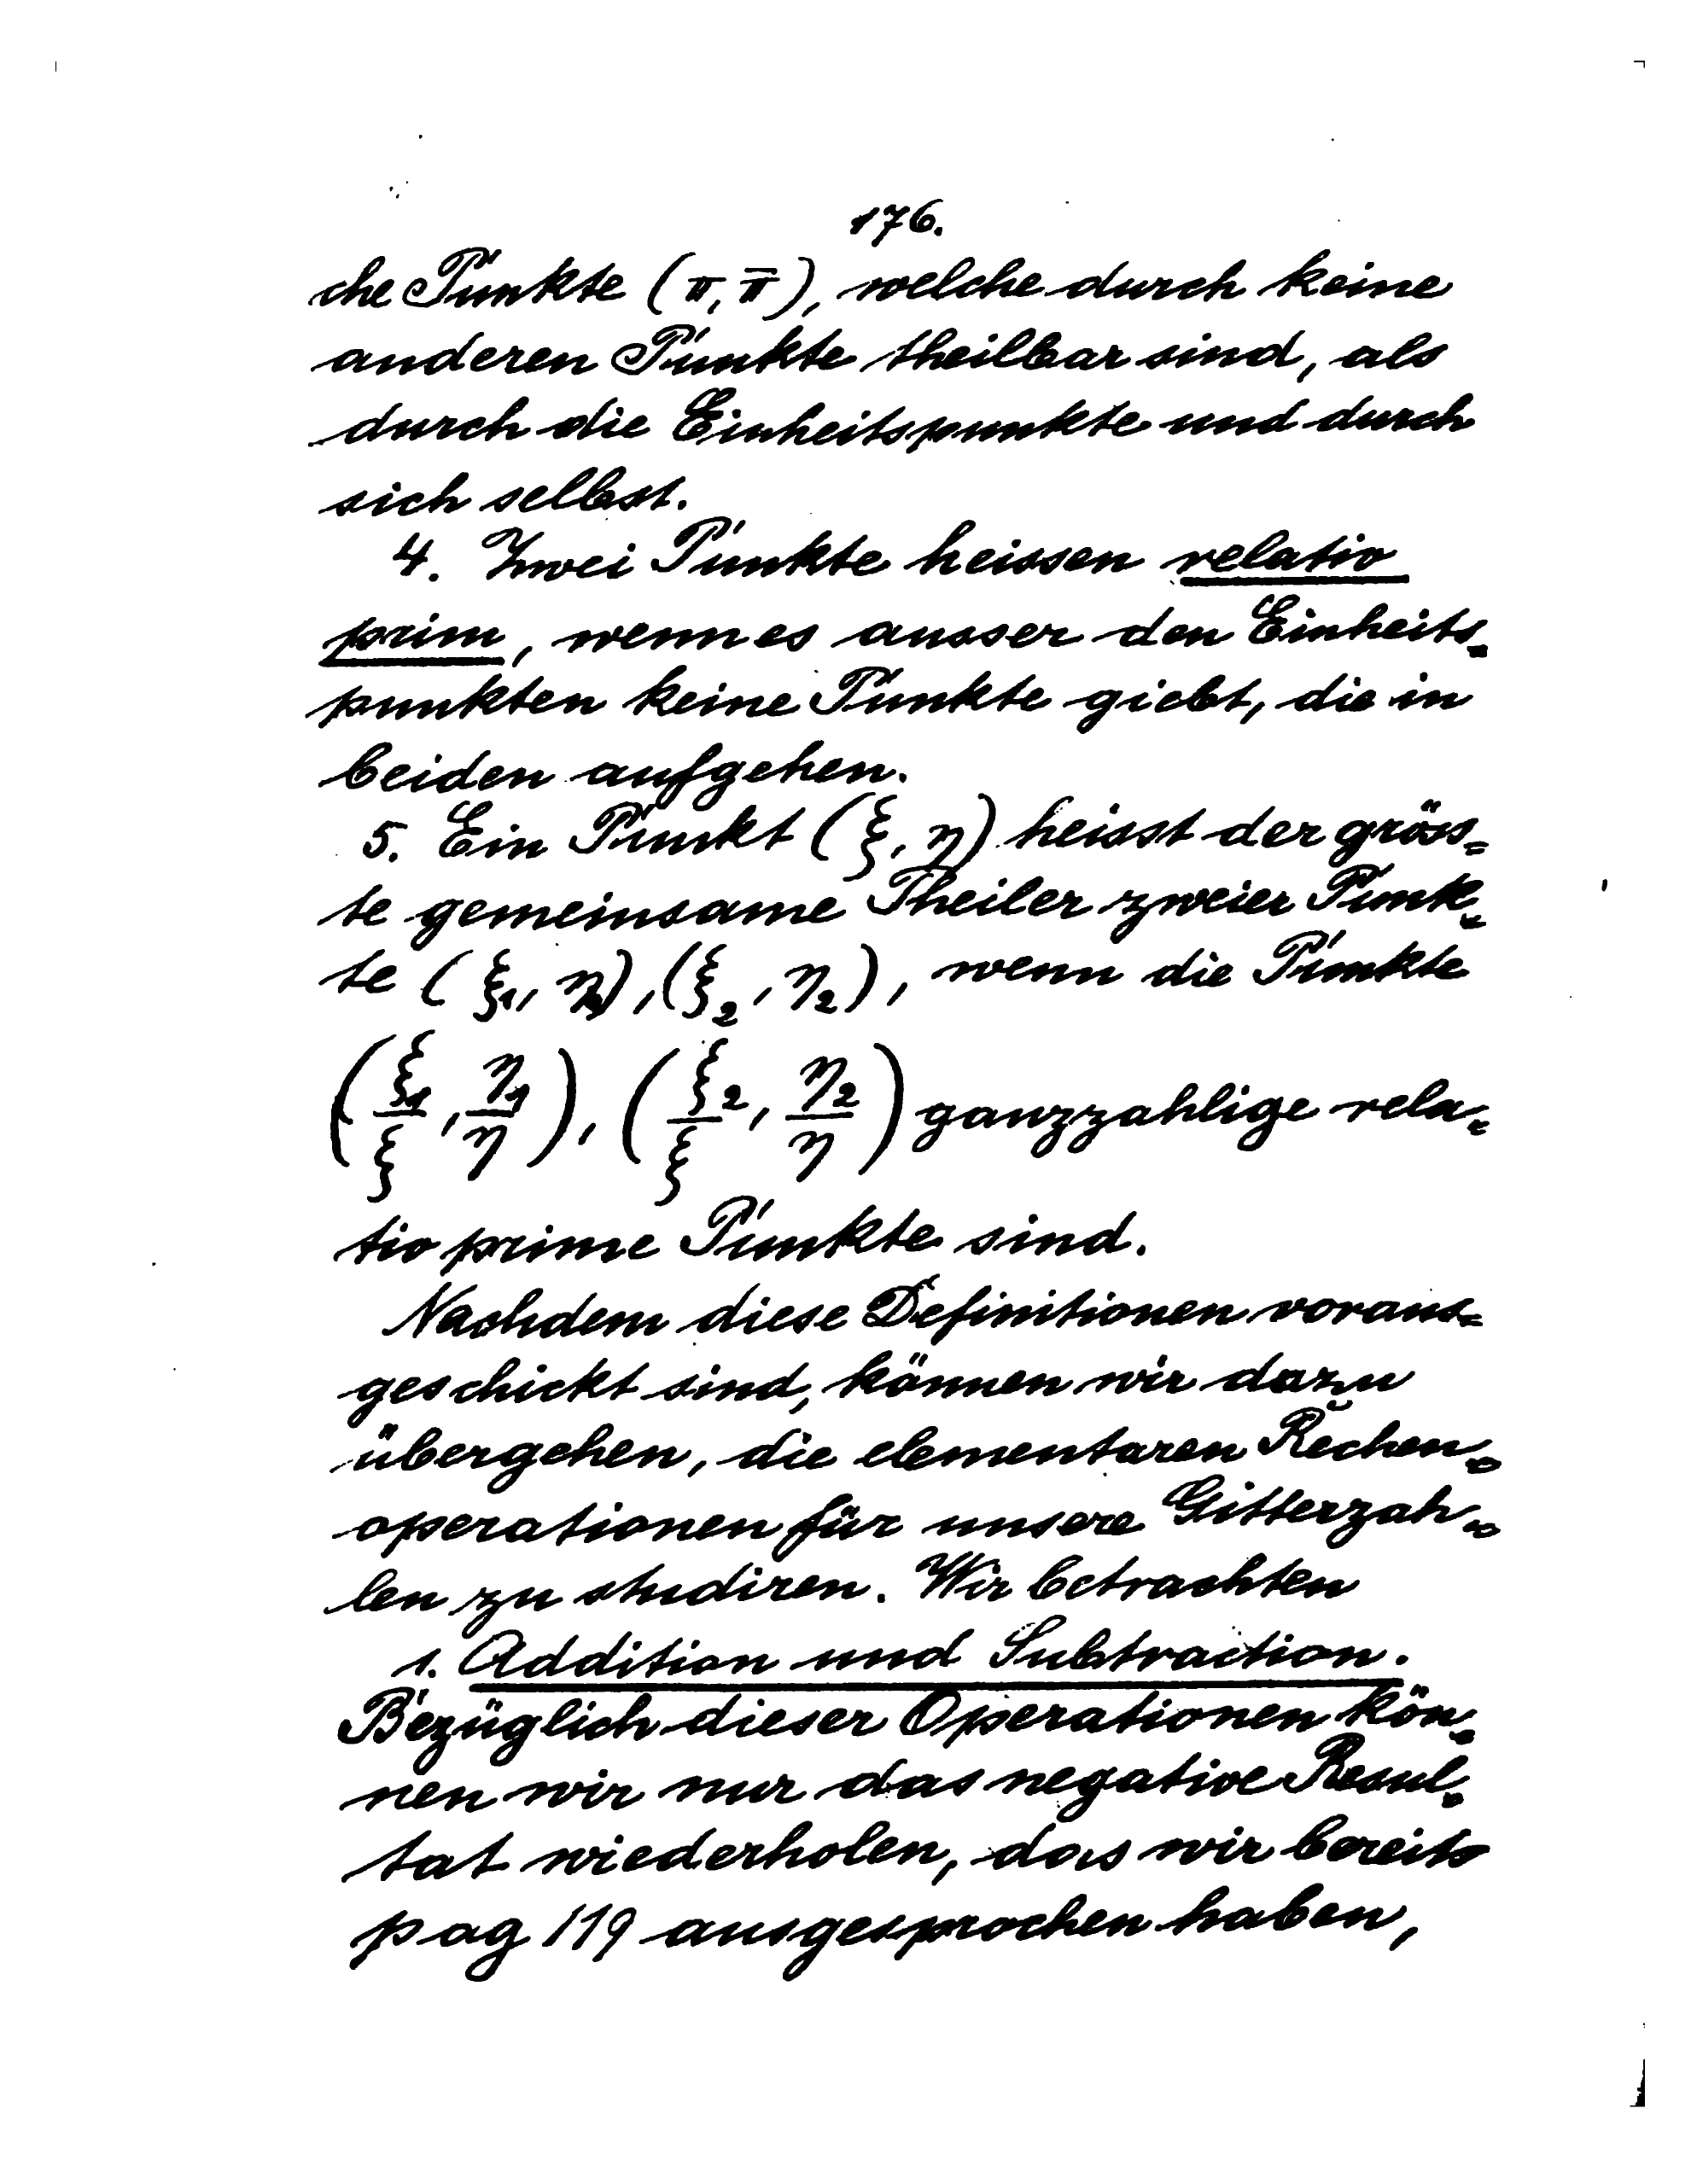 176.
che Punkte (π, π̅), welche durch keine
anderen Punkte theilbar sind, als
durch die Einheitspunkte und durch
sich selbst.
4. Zwei Punkte heissen relativ
prim, wenn es ausser den Einheits-
punkten keine Punkte giebt, die in
beiden aufgehen.
5. Ein Punkt (ξ, η) heisst der gröss=
te gemeinsame Theiler zweier Punk-
te (ξ₁, η₁), (ξ₂, η₂), wenn die Punkte
(ξ₁/ξ, η₁/η), (ξ₂/ξ, η₂/η) ganzzahlige rela=
tiv prime Punkte sind.
Nachdem diese Definitionen voraus=
geschickt sind, können wir dazu
übergehen, die elementaren Rechen-
operationen für unsere Gitterzah-
len zu studiren. Wir betrachten
1. Addition und Subtraction.
Bezüglich dieser Operationen kön-
nen wir nur das negative Resul-
tat wiederholen, das wir bereits
pag 119 ausgesprochen haben,